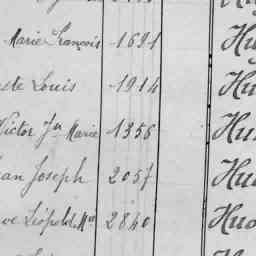 Marie François 1691 Hu
Louis 1914 Hu
Victor Jn Marie 1356 Hu
Joseph 2057 Hu
Léopold Mie 2840 Hu